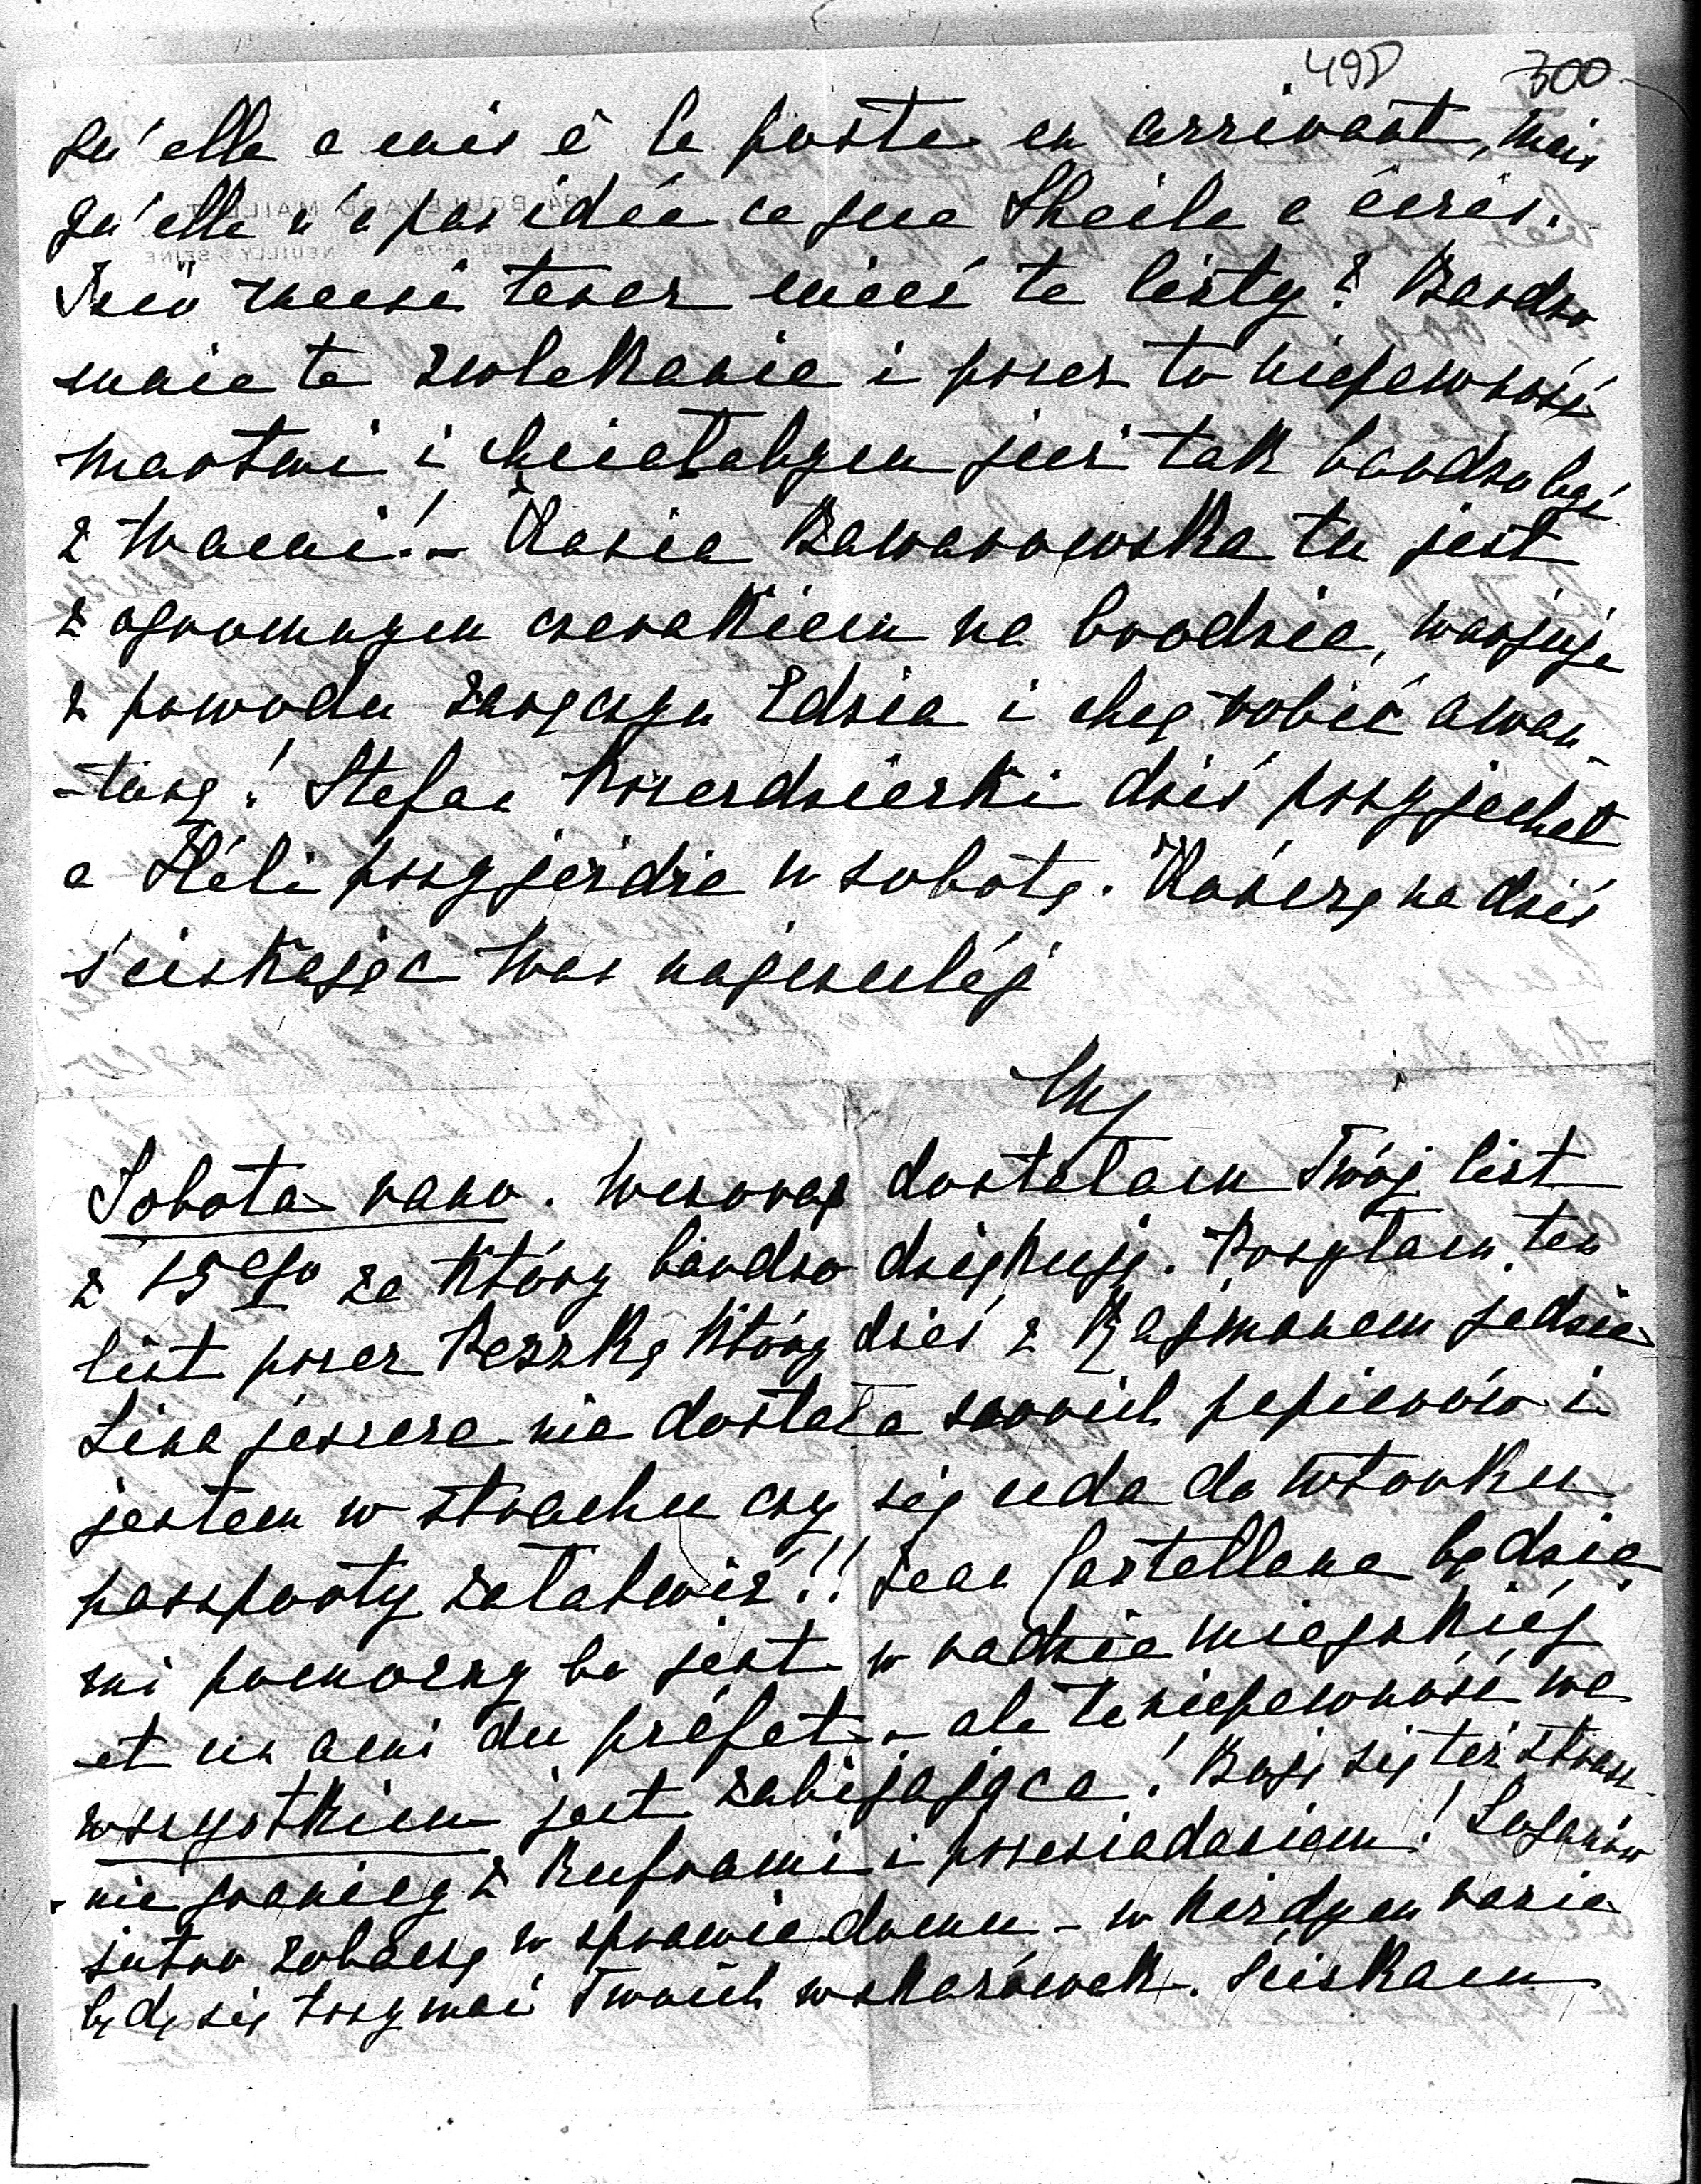 498 300
qu'elle a mis à la poste en arrivant, mais
qu'elle n'a pas idée ce que Sheila a écris.
musi teraz mieć te listy? Bardzo
mnie te zwlekanie i przez to niepewność
martwi i chciałabym już tak bardzo być
z Wami! - Kasia Baworowska tu jest
z ogromnym czerakiem na brodzie, warjuje
z powodu zaręczyn Edzia i chcę robić awan-
-turę! Stefan dziś przyjechał
a Héli przyjeżdża w sobotę. Kończę na dziś
ściskając Was najczulej
My
Sobota rano. Wczoraj dostałam Twój list
z 15ego za który bardzo dziękuję. Posyłam ten
list przez Reszkę który dziś z Rajmanem jedzie
Lina jeszcze nie dostała swoich papierów i
jestem w strachu czy się uda do wtorku
passporty załatwić!! Jean Castellane będzie
mi pomocny bo jest w radzie miejskiéj
et un ami du préfet - ale te niepewność we
wszystkiem jest zabijająca! Boję się też strasz-
-nie granicy z kuframi i przesiadaniem!
jutro zobaczę w sprawie domu - w każdym razie
będę się trzymać Twoich wskazówek. Ściskam